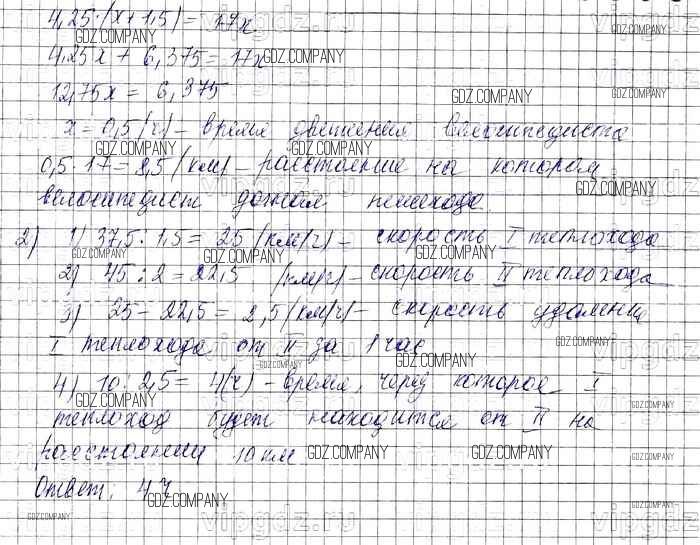 4,25·(x+1,5)=17x
4,25x + 6,375 = 17x
12,75x = 6,375
x = 0,5 (ч) – время движения велосипедиста
0,5 · 17 = 8,5 (км) – расстояние на котором
велосипедист догнал пешехода.
2) 1) 37,5 : 1,5 = 25 (км/ч) – скорость I теплохода
2) 45 : 2 = 22,5 (км/ч) – скорость II теплохода
3) 25 – 22,5 = 2,5 (км/ч) – скорость удаления
I теплохода от II за 1 час
4) 10 : 2,5 = 4 (ч) – время, через которое I
теплоход будет находится от II на
расстоянии 10 км
Ответ: 4 ч
GDZ.COMPANY
vipgdz.ru